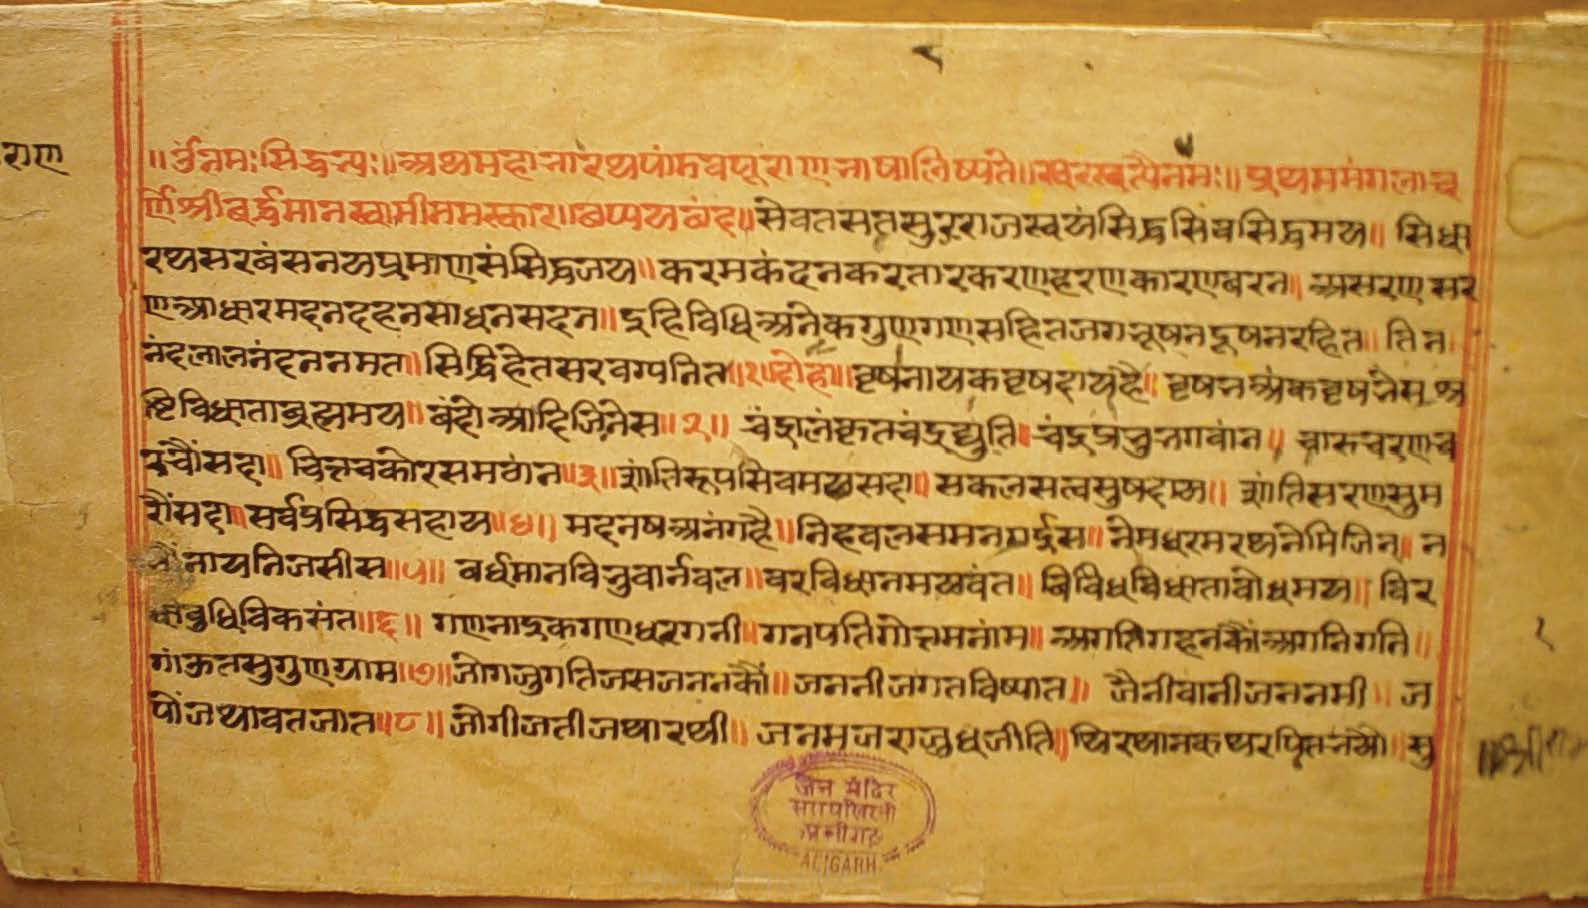 राण
॥उँनमःसिद्धेभ्यः॥अथमहाभारथपांडवपूराणभाषालिष्यते॥सरस्वत्यैनमः॥प्रथममंगलाच
र्णश्रीबर्द्धमानस्वामीनमस्कार॥छप्पयछंद॥सेवतसतसुरराजस्वयंसिद्धसिवसिद्धमय॥सिधा
रथसरबंसनयप्रमाणसंसिद्धजय॥करमकंदनकरतारकरणहरणकारणबरन॥असरणसर
णआधारमदनदहनसाधनसदन॥इहिविधिअनेकगुणगणसहितजगभूषनदूषनरहित॥तिन
नंदलालनंदननमत॥सिद्धिहेतसरवग्यनित॥१॥दोहा॥वृषनायकवृषदायहै॥वृषभअंकवृषभेस॥श्र
ष्टिविधाताब्रह्ममय॥बंदोआदिजिनेस॥२॥चंद्रालंकृतचंद्रद्युति॥चंद्रप्रभुभगवान॥चारुचरणच
रचौंसदा॥चित्तचकोरसमठांन॥३॥शांतिरूपसिवमयसदा॥सकलसत्वसुषदाय॥शांतिसरणसुम
रौंसदा॥सर्वप्रसिद्धसहाय॥४॥मदनषअनंगहै॥तिहवलसमन
नेमधरमरथनेमिजिन॥न
नायनिजसीस॥५॥वर्धमानविभुवार्नवल॥वरविधानमयवंत॥बिविधविधाताबोधमय॥विर
धावुधिविकसंत॥६॥गणनाइकगणधरगनी॥गनपतिगोत्तमनांम॥अगतिगहनकौंअगतिगति॥
गांऊतसुगुणग्राम॥७॥जोगजुगतिजसजननकौं॥जननीजगतविष्यात॥जैनीवानीजननमी॥ज
पोंजथावतजात॥८॥जोगीजतीजथारथी॥जनमजराजुधजीति॥थिरथानकथर
सु
॥श्री
जैन मंदिर
ALIGARH